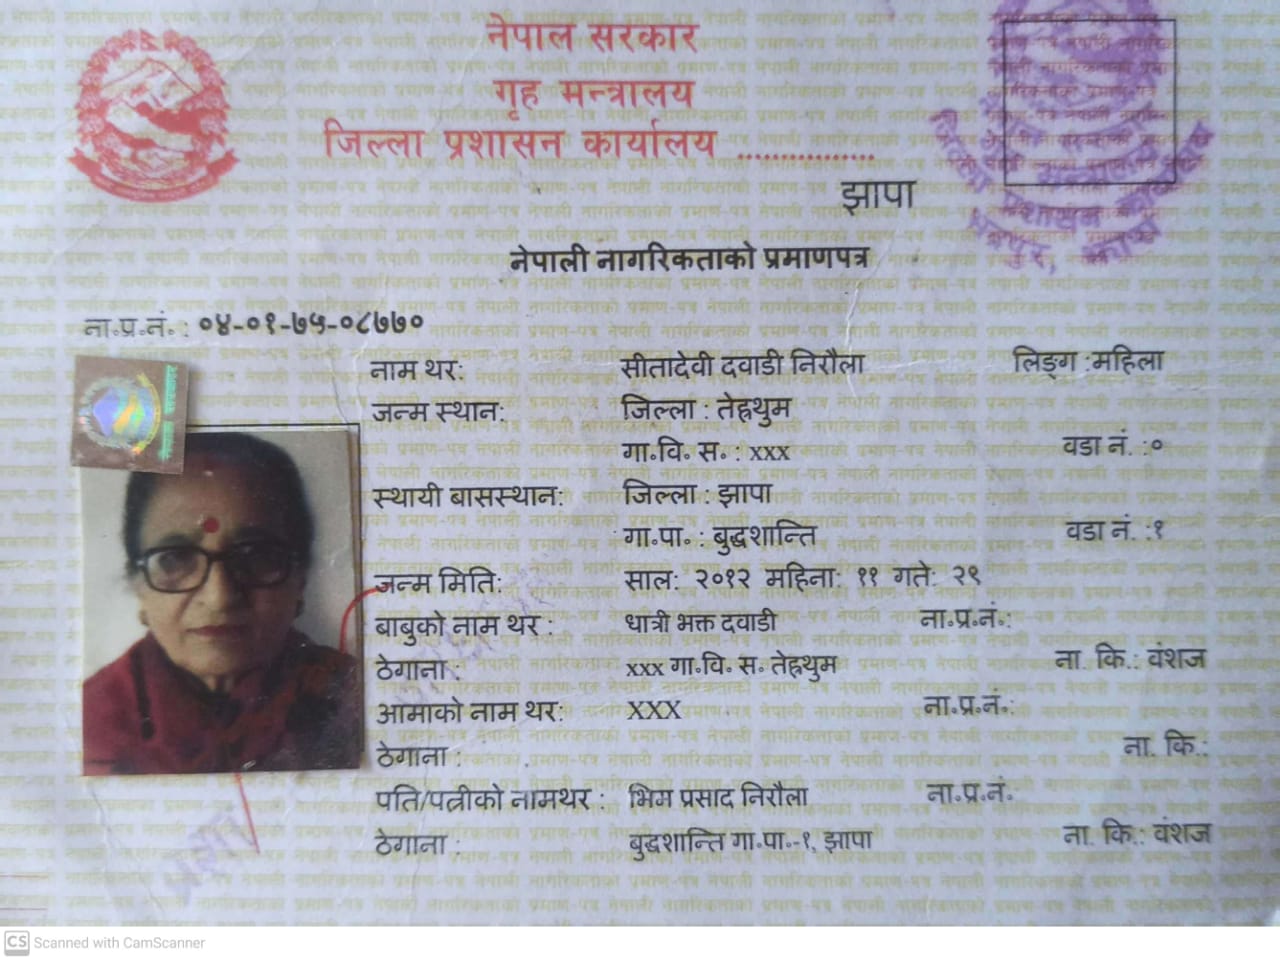 नेपाल सरकार
गृह मन्त्रालय
जिल्ला प्रशासन कार्यालय ...............
झापा
नेपाली नागरिकताको प्रमाणपत्र
ना.प्र.नं. : ०४-०१-७५-०८७७०
नाम थर: सीतादेवी दवाडी निरौला लिङ्ग :महिला
जन्म स्थान: जिल्ला : तेह्रथुम
गा.वि. स. : xxx वडा नं. :०
स्थायी बासस्थान: जिल्ला : झापा
गा.पा. : बुद्धशान्ति वडा नं. :१
जन्म मिति: साल: २०१२ महिना: ११ गते: २९
बाबुको नाम थर : धात्री भक्त दवाडी ना.प्र.नं.:
ठेगाना : xxx गा.वि. स. तेह्रथुम ना. कि.: वंशज
आमाको नाम थर: XXX ना.प्र.नं.:
ठेगाना : ना. कि.:
पति/पत्नीको नामथर : भिम प्रसाद निरौला ना.प्र.नं.
ठेगाना : बुद्धशान्ति गा.पा.-१, झापा ना. कि.: वंशज
CS Scanned with CamScanner